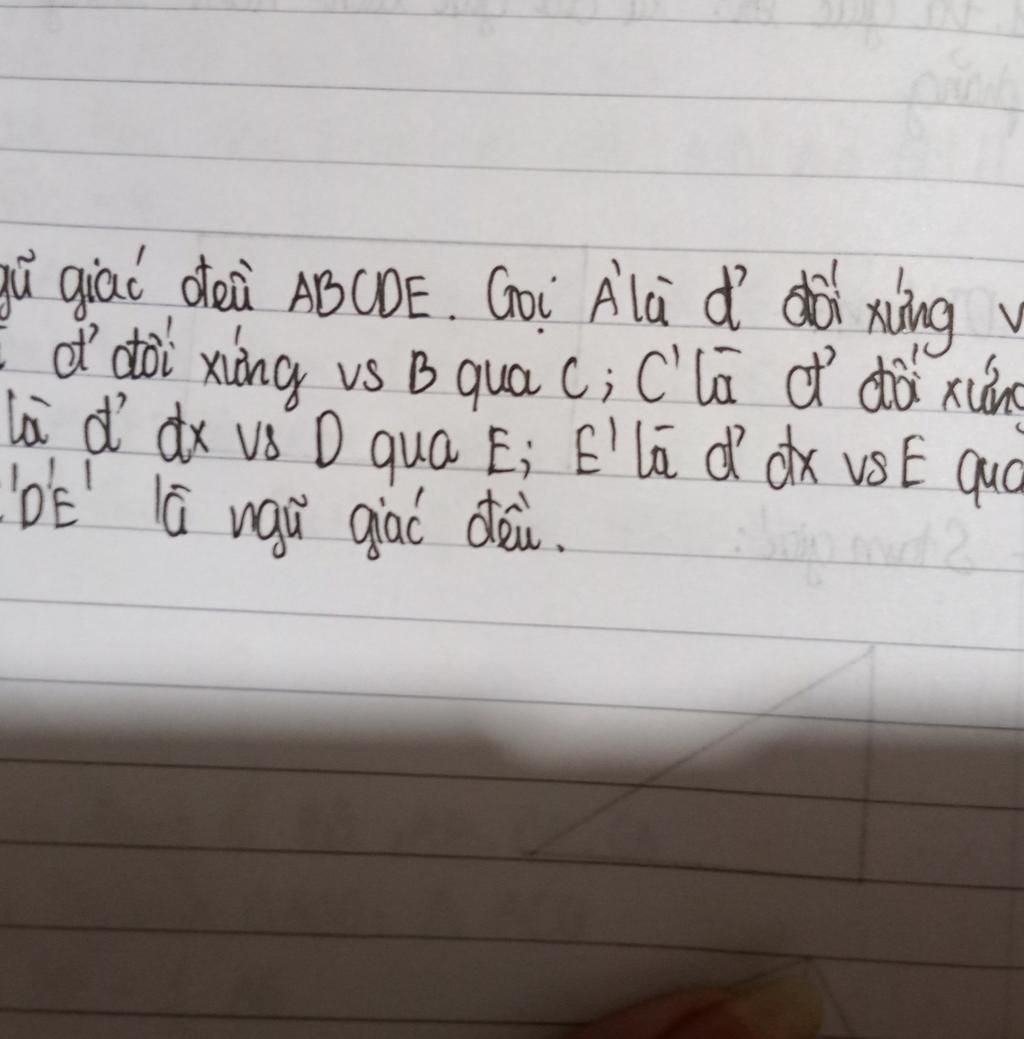 giác đều ABCDE. Gọi A' là đ' đối xứng
đ' đối xứng vs B qua C; C' là đ' đối xứng
là đ' đx vs D qua E; E' là đ' đx vs E qua
'D'E' là ngũ giác đều.